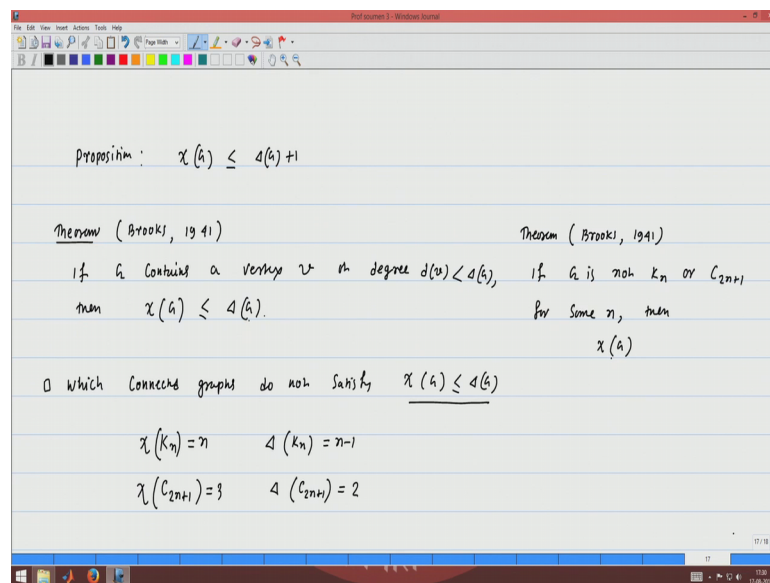 Prof soumen 3 - Windows Journal
File Edit View Insert Actions Tools Help
Page Width
B I
Proposition : χ(G) ≤ Δ(G) +1
Theorem (Brooks, 1941)
If G contains a vertex v of degree d(v) < Δ(G),
then χ(G) ≤ Δ(G).
Theorem (Brooks, 1941)
If G is not Kn or C2n+1
for some n, then
χ(G)
□ which connected graphs do not satisfy χ(G) ≤ Δ(G)
χ(Kn) = n Δ(Kn) = n-1
χ(C2n+1) = 3 Δ(C2n+1) = 2
17 / 18
17
17:30